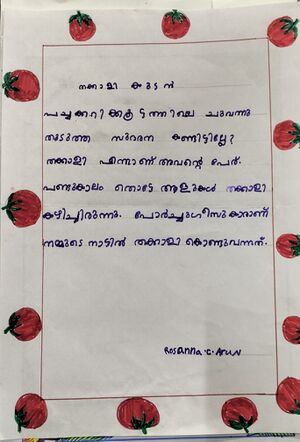 തക്കാളി കുട്ടൻ
പച്ചക്കറിക്കൂട്ടത്തിലെ ചുവന്നു
തുടുത്ത സുന്ദരനെ കണ്ടിട്ടില്ലേ?
തക്കാളി എന്നാണ് അവന്റെ പേര്.
പണ്ടുകാലം തൊട്ടേ ആളുകൾ തക്കാളി
കഴിച്ചിരുന്നു. പോർച്ചുഗീസുകാരാണ്
നമ്മുടെ നാട്ടിൽ തക്കാളി കൊണ്ടുവന്നത്.
Rosanna.C.Arun